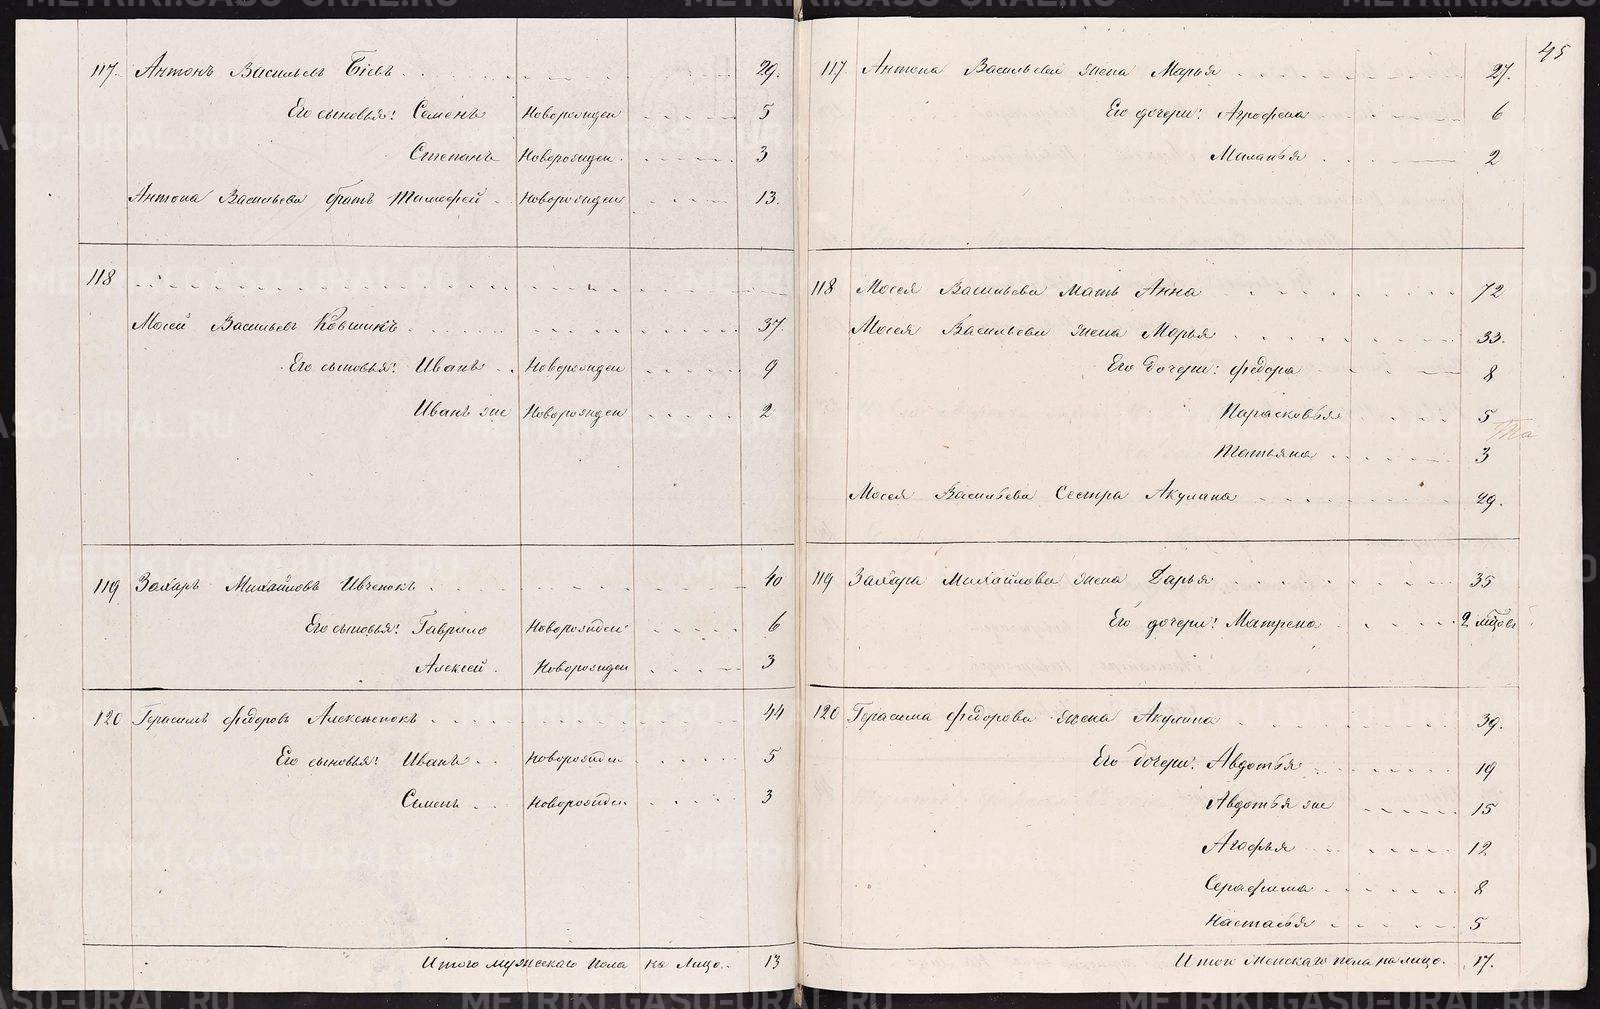 117. Антонъ Васильевъ Біевъ 29.
Его сыновья: Семенъ Новорожден 5
Степанъ Новорожден. 3
Антона Васильева братъ Тимофей Новорожден 13.
118
Мосей Васильевъ Ковшикъ 37.
Его сыновья: Иванъ Новорожден 9
Иванъ же Новорожден 2
119 Захаръ Михайловъ Ивченокъ 40
Его сыновья: Гаврило Новорожден 6
Алексей. Новорожден 3
120 Герасимъ Федоровъ 44
Его сыновья: Иванъ Новорожден 5
Семенъ Новорожден 3
Итого мужескаго пола на лицо. 13
45
117. Антона Васильева жена Марья 27.
Его дочери: Агрофена 6
Миланья 2
118 Мосея Васильева мать Анна 72
Мосея Васильева жена Марья 33.
Его дочери: Федора 8
Парасковья 5
Татьяна 3
Мосея Васильева сестра Акулина 29.
119 Захара Михайлова жена Дарья 35
Его дочери: Матрена 2
120 Герасима Федорова жена Акулина 39.
Его дочери: Авдотья 19
Авдотья же 15
Агафья 12
Серафима 8
Настасья 5
Итого женскаго пола на лицо. 17.
METRIKI.GASO-URAL.RU